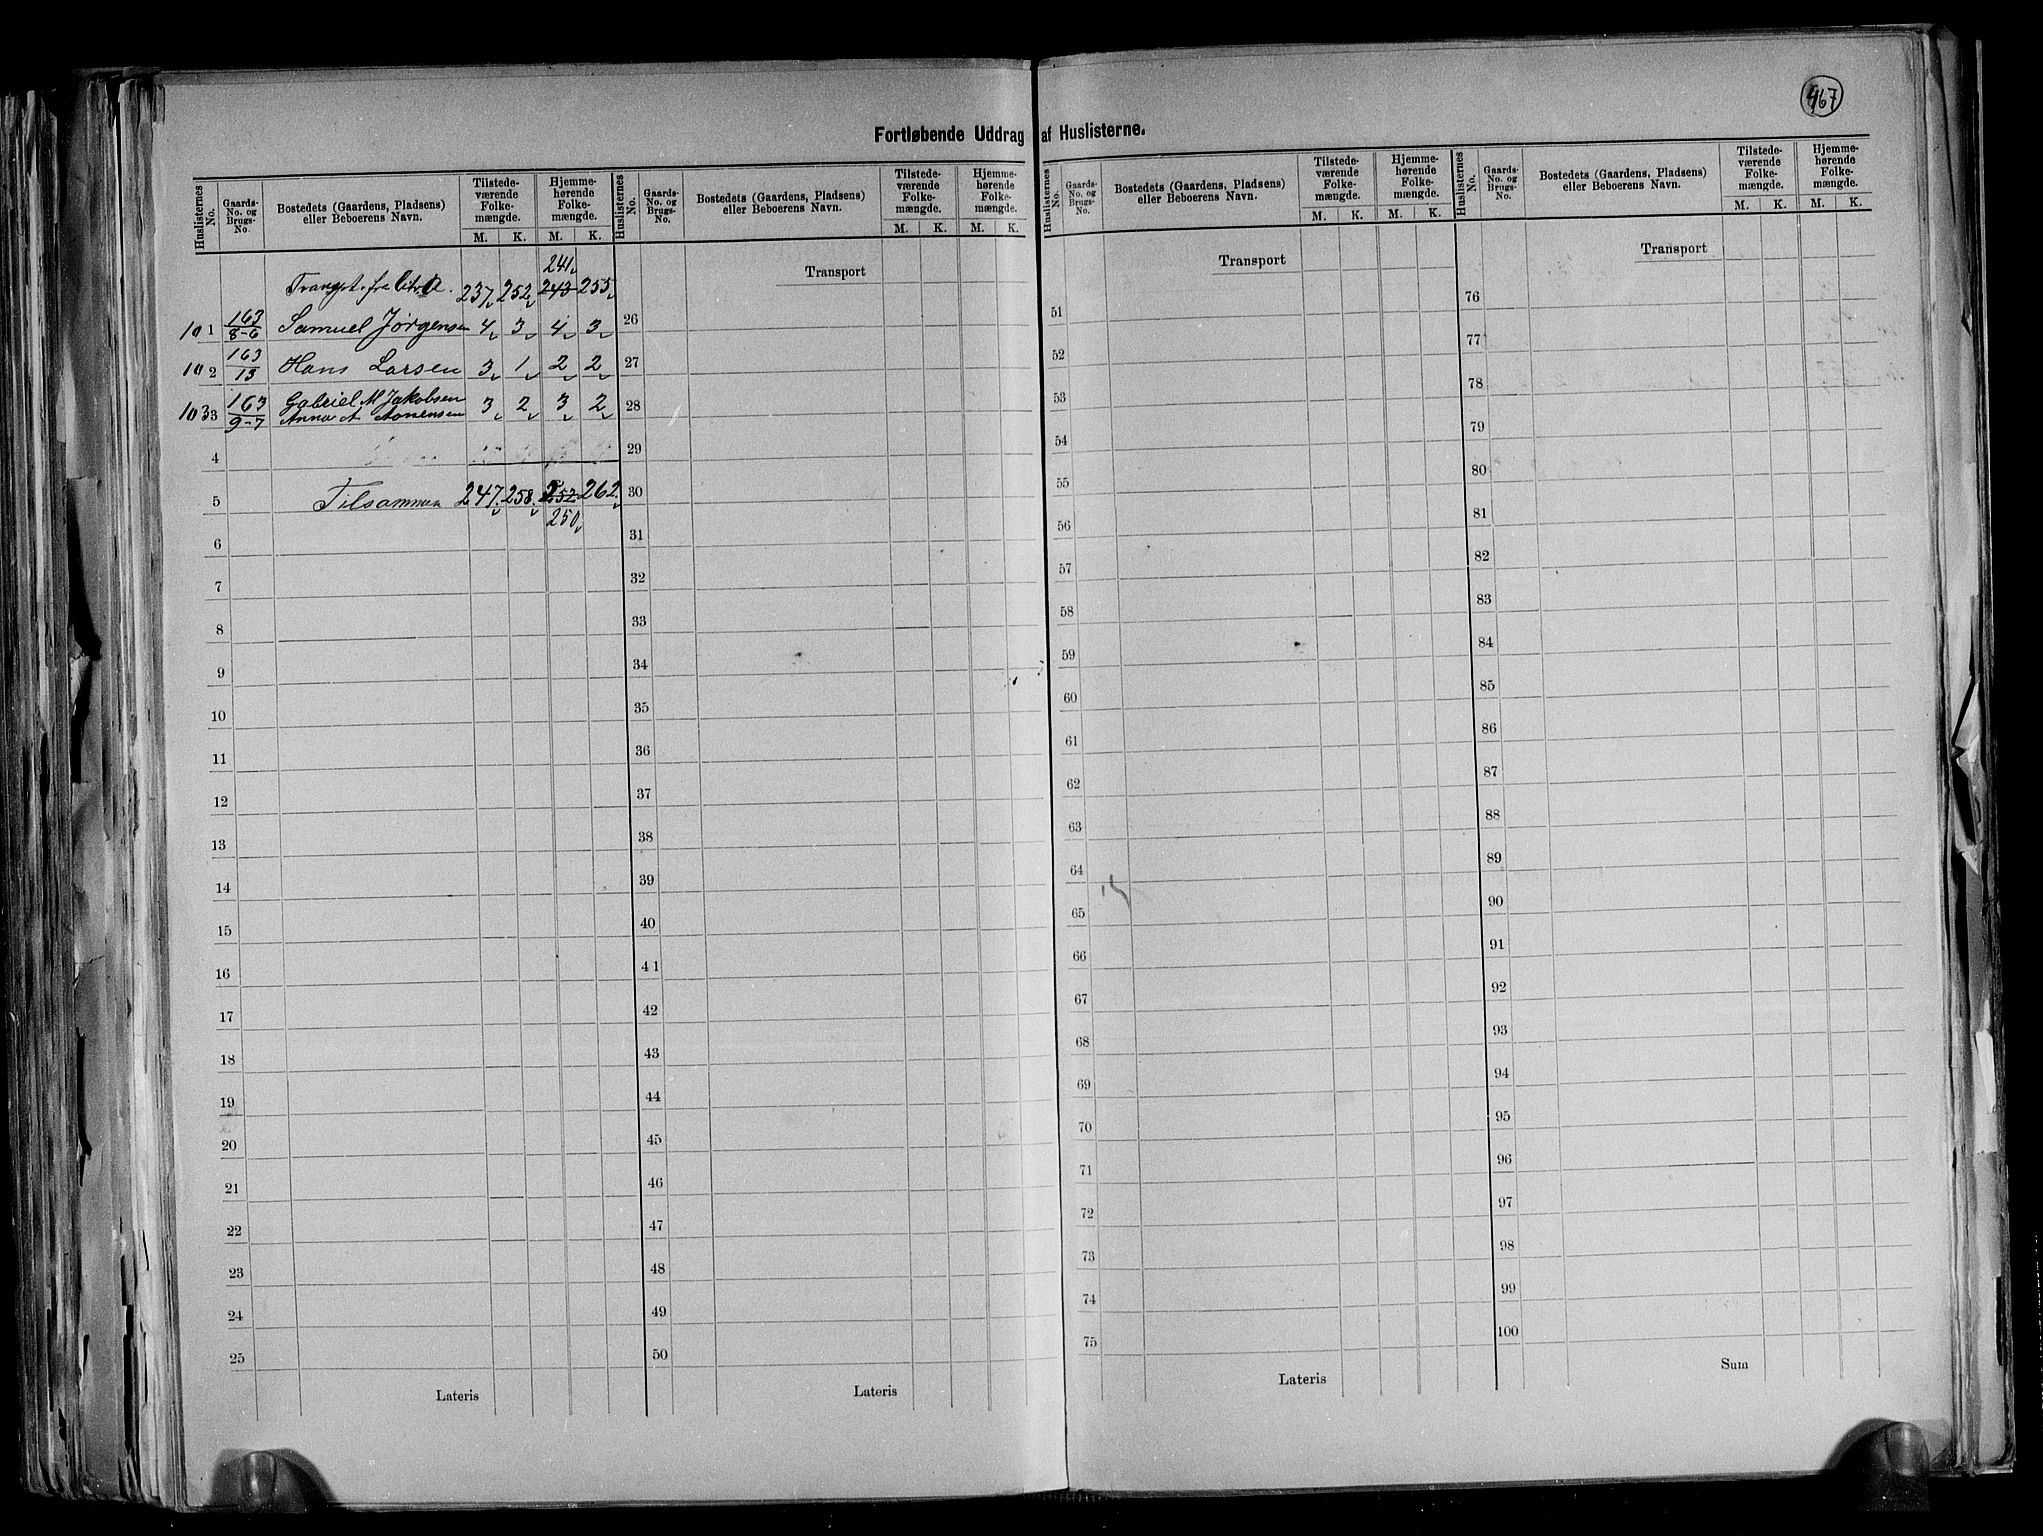 467
Fortløbende Uddrag af Huslisterne.
Huslisternes No. Gaards-No. og Brugs-No. Bostedets (Gaardens, Pladsens) eller Beboerens Navn. Tilstede-værende Folke-mængde. Hjemme-hørende Folke-mængde.
M. K. M. K.
241
Transpt. fra 237 252 243 255
101 163/8-6 Samuel Jørgensen 4 3 4 3
102 163/15 Hans Larsen 3 1 2 2
1033 163/9-7 Gabriel M Jakobsen 3 2 3 2
Anna A Aanensen
4
5 Tilsammen 247 258 252 262
250
6
7
8
9
10
11
12
13
14
15
16
17
18
19
20
21
22
23
24
25
Lateris
Huslisternes No. Gaards-No. og Brugs-No. Bostedets (Gaardens, Pladsens) eller Beboerens Navn. Tilstede-værende Folke-mængde. Hjemme-hørende Folke-mængde.
M. K. M. K.
Transport
26
27
28
29
30
31
32
33
34
35
36
37
38
39
40
41
42
43
44
45
46
47
48
49
50
Lateris
Huslisternes No. Gaards-No. og Brugs-No. Bostedets (Gaardens, Pladsens) eller Beboerens Navn. Tilstede-værende Folke-mængde. Hjemme-hørende Folke-mængde.
M. K. M. K.
Transport
51
52
53
54
55
56
57
58
59
60
61
62
63
64
65
66
67
68
69
70
71
72
73
74
75
Lateris
Huslisternes No. Gaards-No. og Brugs-No. Bostedets (Gaardens, Pladsens) eller Beboerens Navn. Tilstede-værende Folke-mængde. Hjemme-hørende Folke-mængde.
M. K. M. K.
Transport
76
77
78
79
80
81
82
83
84
85
86
87
88
89
90
91
92
93
94
95
96
97
98
99
100
Sum